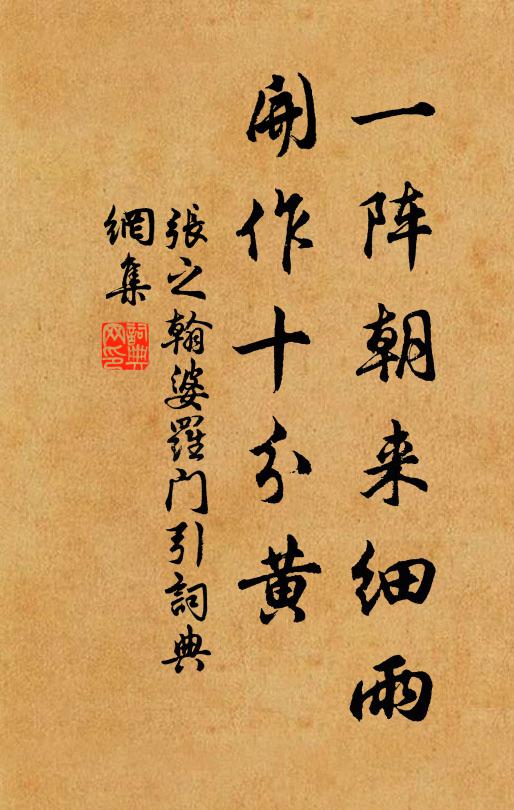 一阵朝来细雨
開作十分黄
張之翰婆羅门引詞典
網集
詞典網印